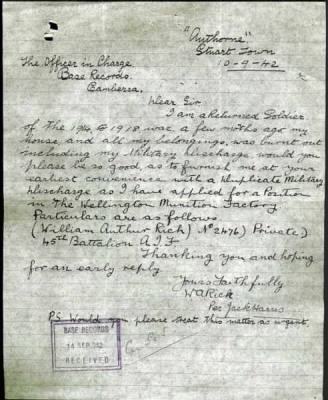 "Anthorne"
Stuart Town
10-9-42
The Officer in Charge
Base Records.
Camberra.
Dear Sir
I am a Returned Soldier
of the 1914 to 1918 war a few moths ago my
house and all my belongings, was burnt out
including my Military Discharge would you
please be so good, as to furnish me at your
earliest convenience with a Duplicate Military
Discharge as I have applied for a Position
in The Wellington Munition Factory
Particulars are as follows.
(William Arthur Rich) No 2476) Private)
45th Battalion A.I.F
Thanking you and hoping
for an early reply
Yours Faithfully
W A Rich
Per Jack Harris
P.S. Would you please treat this matter as urgent
BASE RECORDS
14 SEP 1942
RECEIVED